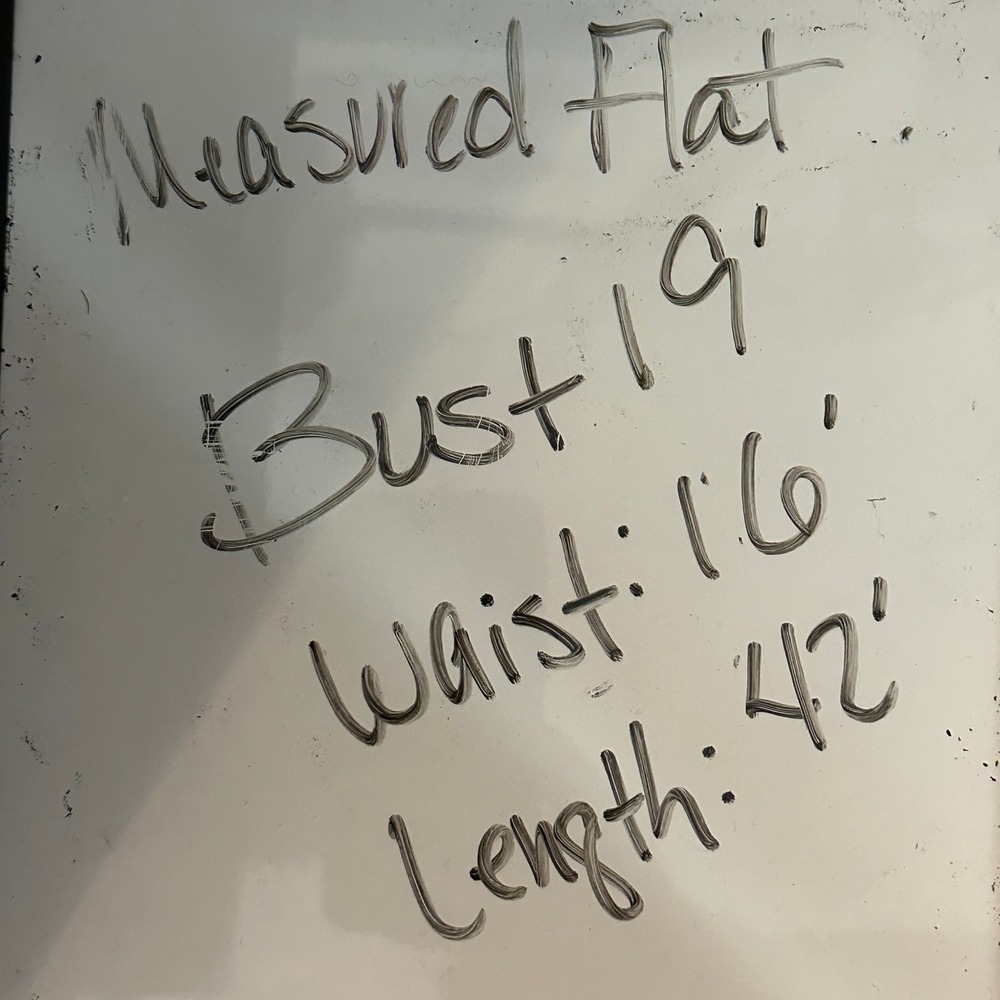 Measured Flat
Bust 19'
Waist: 16'
Length: 42'